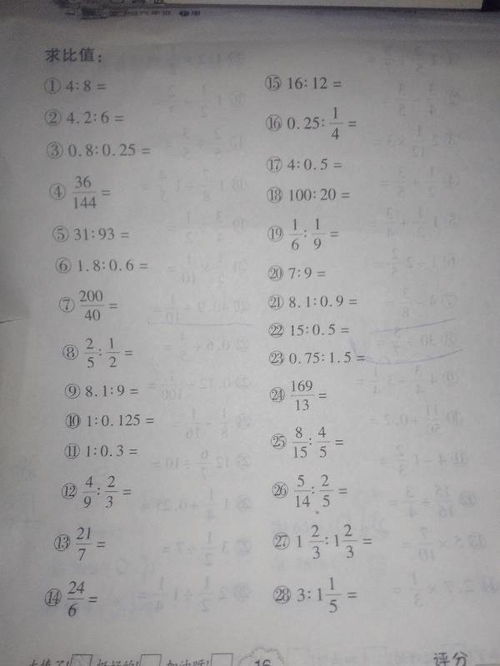 求比值：
① 4∶8＝
② 4.2∶6＝
③ 0.8∶0.25＝
④ 36/144＝
⑤ 31∶93＝
⑥ 1.8∶0.6＝
⑦ 200/40＝
⑧ 2/5∶1/2＝
⑨ 8.1∶9＝
⑩ 1∶0.125＝
⑪ 1∶0.3＝
⑫ 4/9∶2/3＝
⑬ 21/7＝
⑭ 24/6＝
⑮ 16∶12＝
⑯ 0.25∶1/4＝
⑰ 4∶0.5＝
⑱ 100∶20＝
⑲ 1/6∶1/9＝
⑳ 7∶9＝
㉑ 8.1∶0.9＝
㉒ 15∶0.5＝
㉓ 0.75∶1.5＝
㉔ 169/13＝
㉕ 8/15∶4/5＝
㉖ 5/14∶2/5＝
㉗ 1 2/3∶1 2/3＝
㉘ 3∶1 1/5＝
16
评分